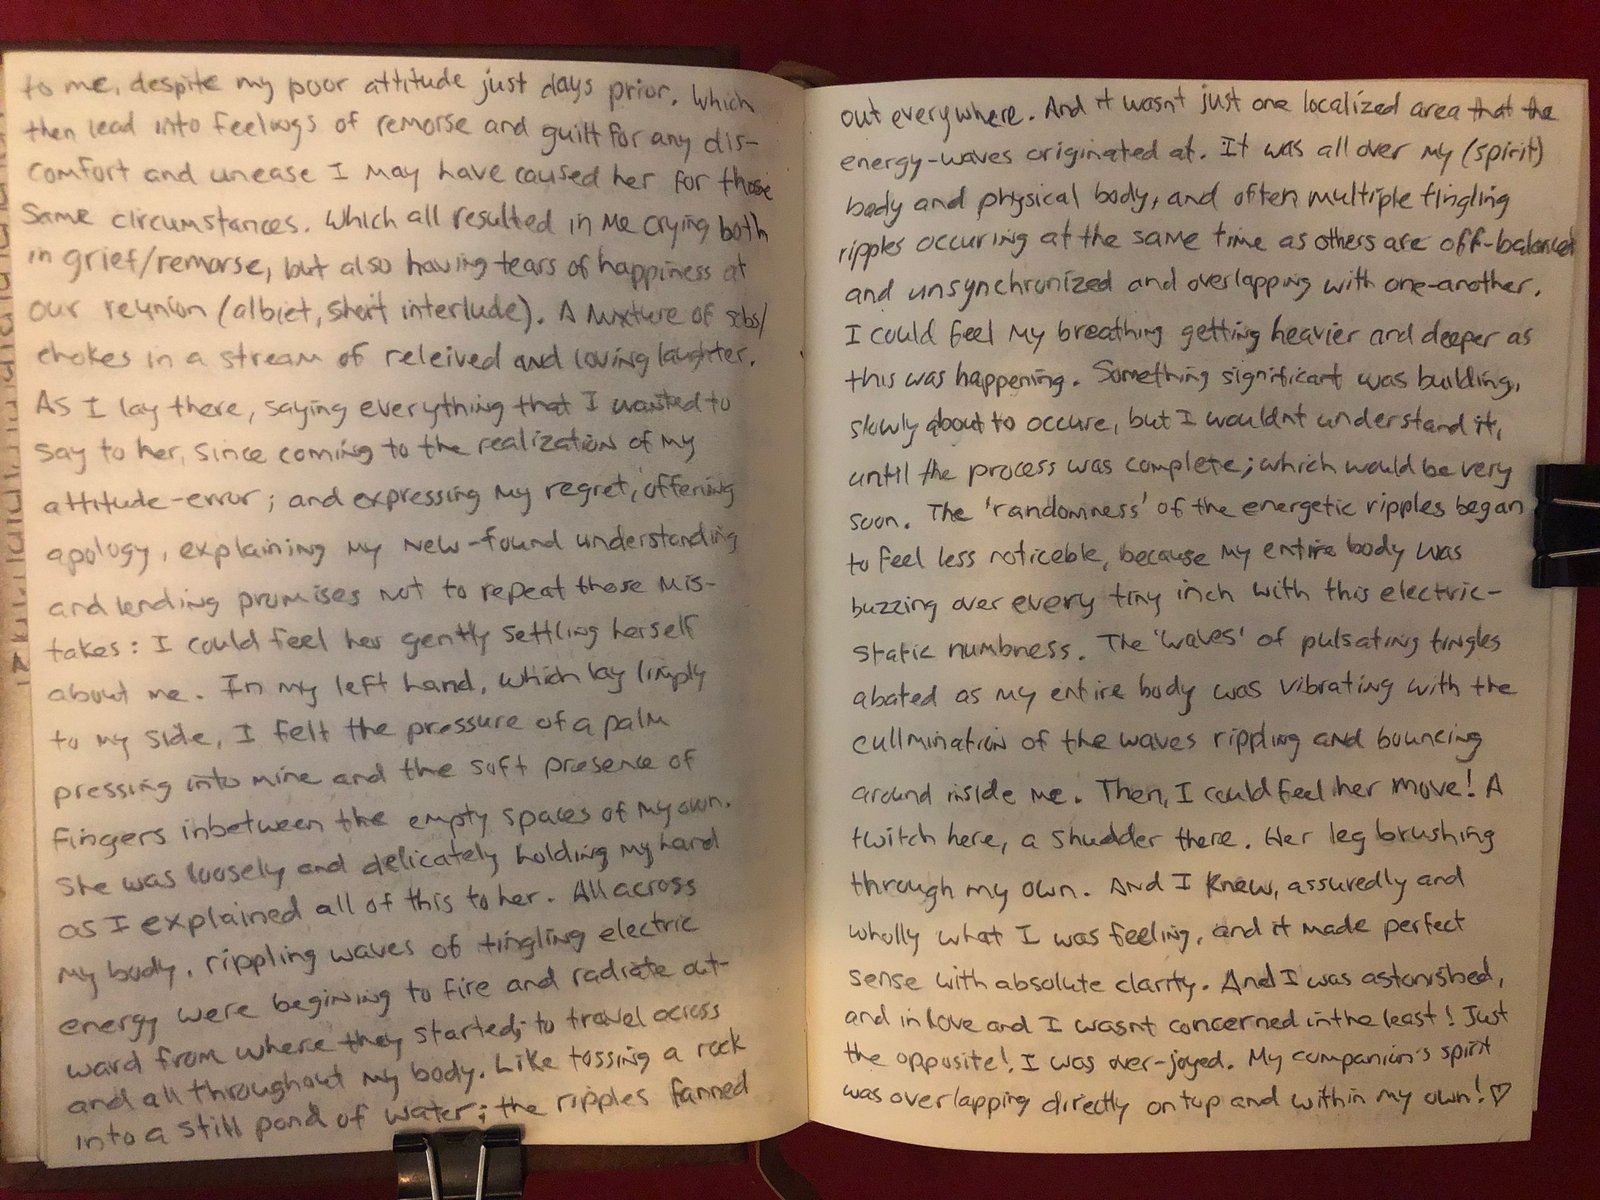 to me, despite my poor attitude just days prior. Which
then lead into feelings of remorse and guilt for any dis-
comfort and unease I may have caused her for those
same circumstances. Which all resulted in me crying both
in grief/remorse, but also having tears of happiness at
our reunion (albiet, short interlude). A mixture of sobs/
chokes in a stream of releived and loving laughter.
As I lay there, saying everything that I wanted to
say to her, since coming to the realization of my
attitude-error; and expressing my regret, offering
apology, explaining my new-found understanding
and lending promises not to repeat those mis-
takes: I could feel her gently settling herself
about me. In my left hand, which lay limply
to my side, I felt the pressure of a palm
pressing into mine and the soft presence of
fingers inbetween the empty spaces of my own.
She was loosely and delicately holding my hand
as I explained all of this to her. All across
my body, rippling waves of tingling electric
energy were begining to fire and radiate out-
ward from where they started; to travel across
and all throughout my body. Like tossing a rock
into a still pond of water; the ripples fanned
out everywhere. And it wasnt just one localized area that the
energy-waves originated at. It was all over my (spirit)
body and physical body, and often multiple tingling
ripples occuring at the same time as others are off-balanced
and unsynchronized and overlapping with one-another.
I could feel my breathing getting heavier and deeper as
this was happening. Something significant was building,
slowly about to occure, but I wouldnt understand it,
until the process was complete; which would be very
soon. The 'randomness' of the energetic ripples began
to feel less noticeble, because my entire body was
buzzing over every tiny inch with this electric-
static numbness. The 'waves' of pulsating tingles
abated as my entire body was vibrating with the
cullmination of the waves rippling and bouncing
around inside me. Then, I could feel her move! A
twitch here, a shudder there. Her leg brushing
through my own. And I knew, assuredly and
wholly what I was feeling, and it made perfect
sense with absolute clarity. And I was astonished,
and in love and I wasnt concerned in the least! Just
the opposite! I was over-joyed. My companion's spirit
was overlapping directly on top and within my own! ♡